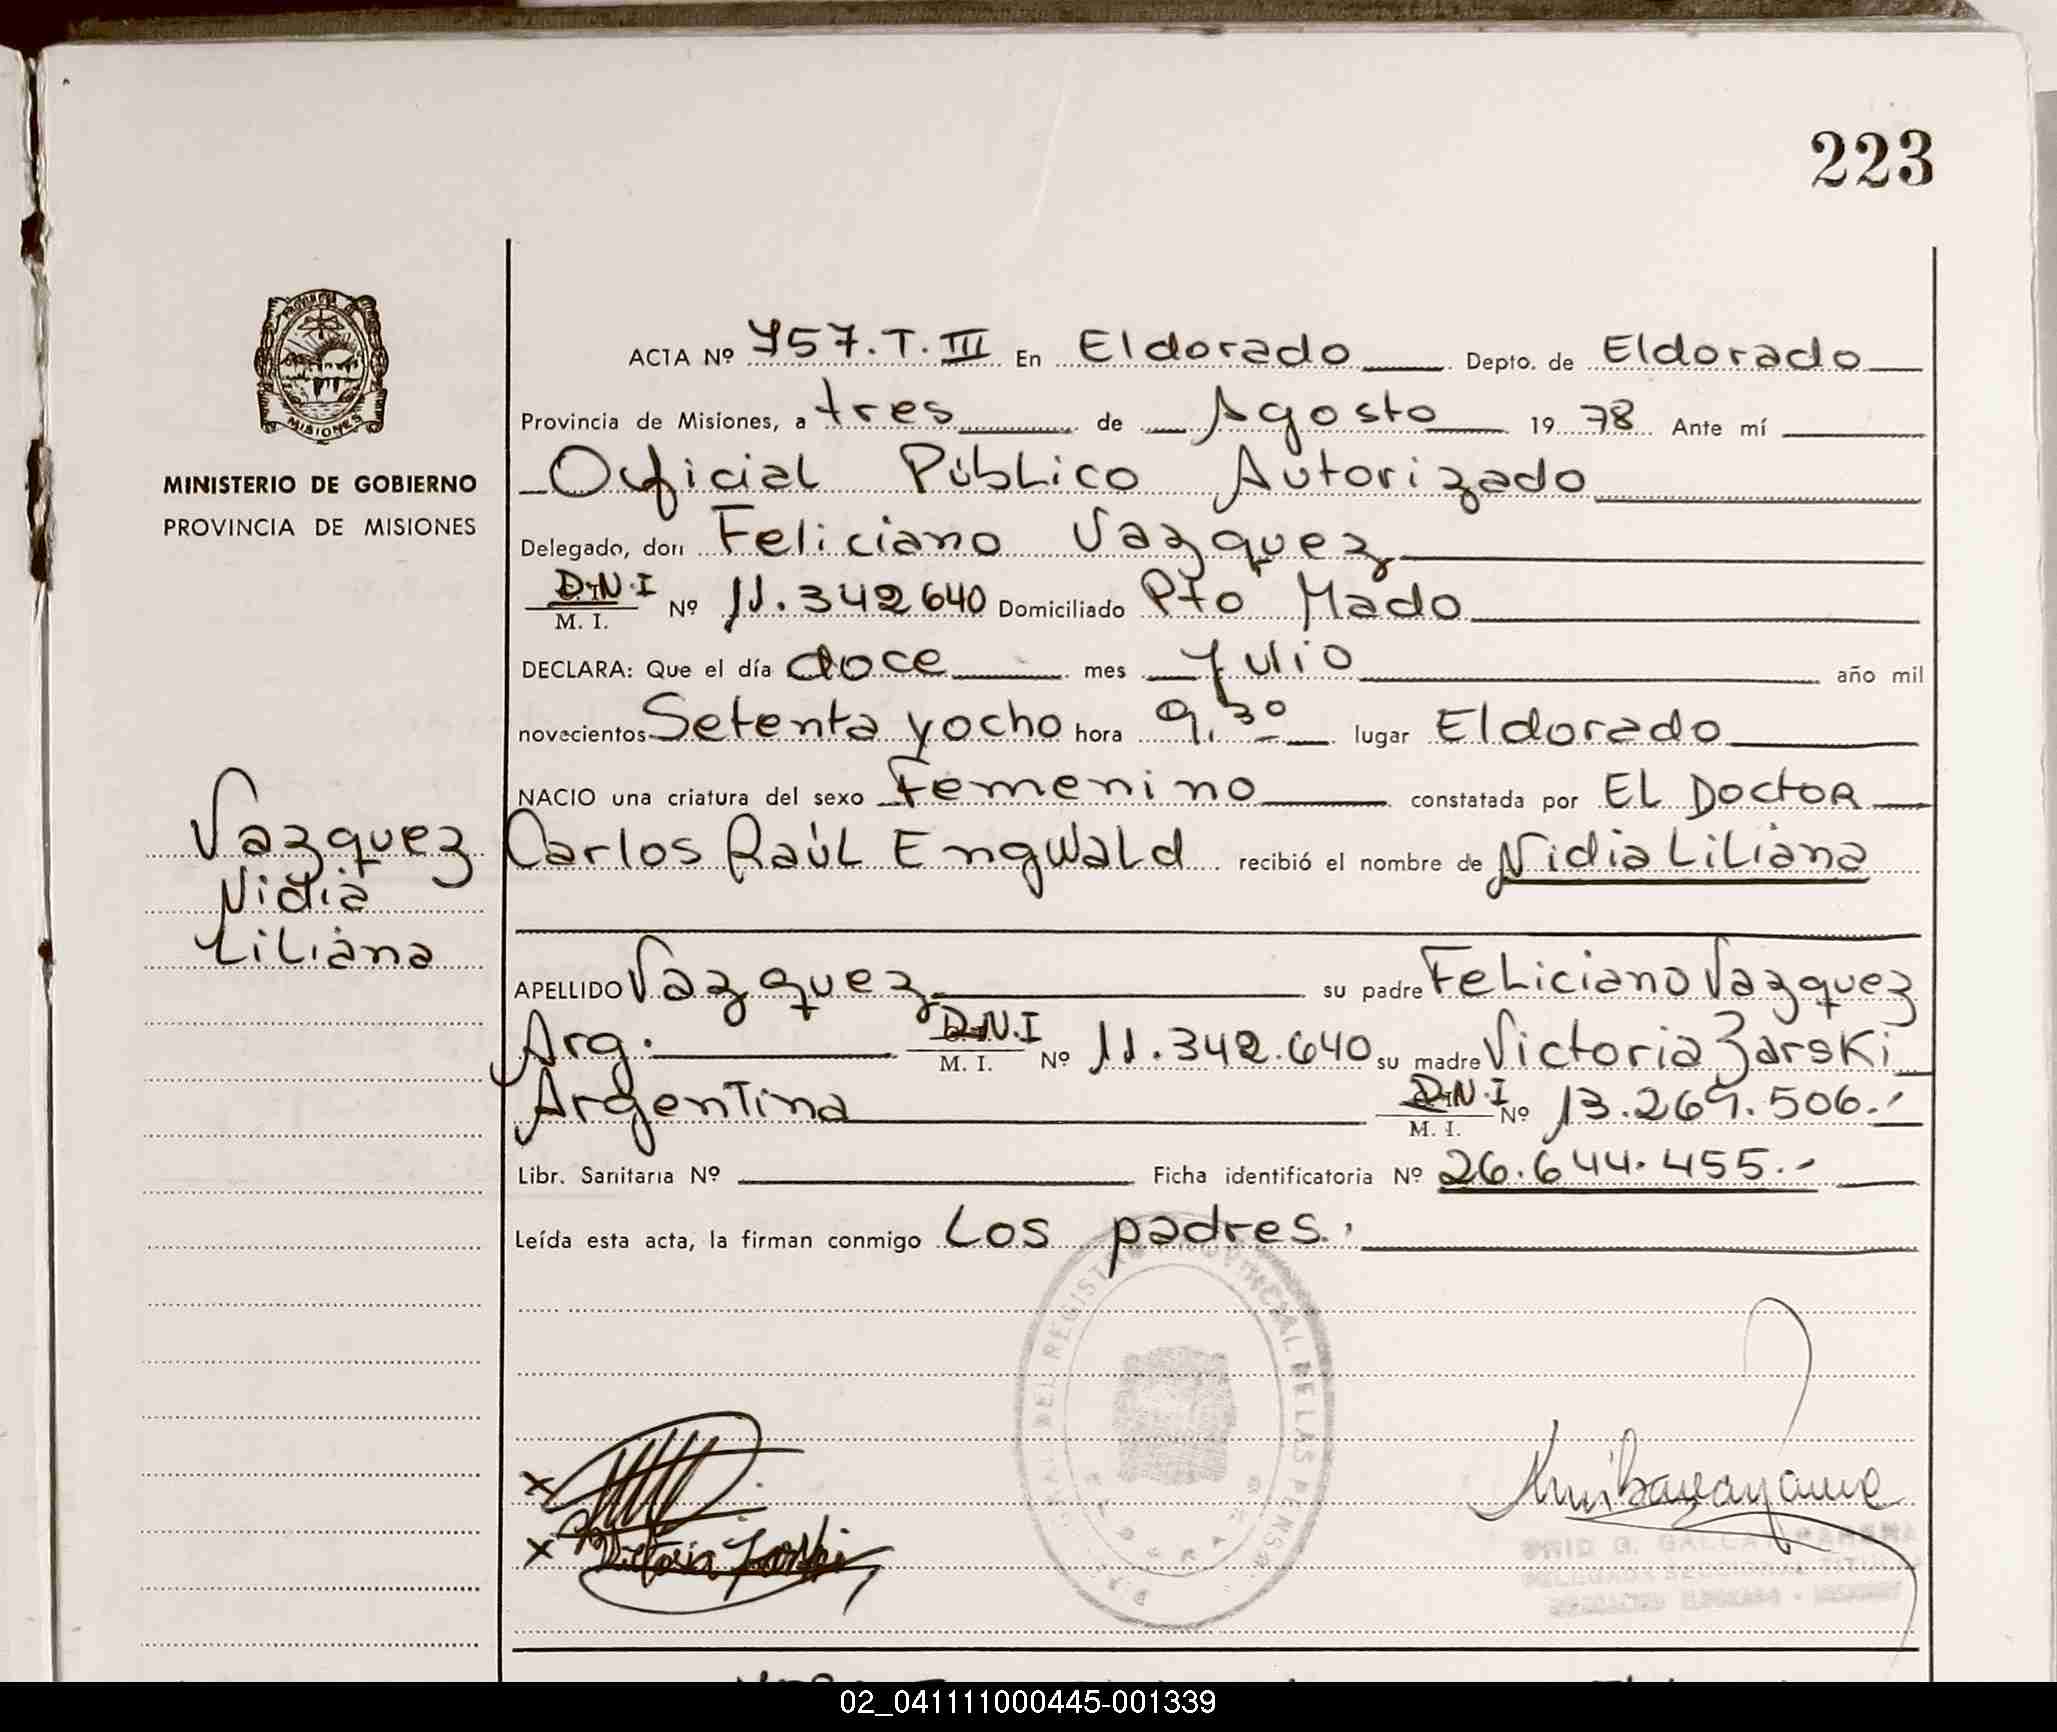 223
MISIONES
MINISTERIO DE GOBIERNO
PROVINCIA DE MISIONES
Vazquez
Nidia
Liliana
ACTA Nº 757.T.III En Eldorado Depto. de Eldorado
Provincia de Misiones, a tres de Agosto 19 78 Ante mí
Oficial Público Autorizado
Delegado, don Feliciano Vazquez
D.N.I
M. I. Nº 11.342640 Domiciliado Pto Mado
DECLARA: Que el día doce mes Julio año mil
novecientos Setenta y ocho hora 9,30 lugar Eldorado
NACIO una criatura del sexo Femenino constatada por EL DOCTOR
Carlos Raúl Engwald recibió el nombre de Nidia Liliana
APELLIDO Vazquez su padre Feliciano Vazquez
Arg. D.N.I M. I. Nº 11.342.640 su madre Victoria Zarski
Argentina D.N.I M. I. Nº 13.269.506.-
Libr. Sanitaria Nº Ficha identificatoria Nº 26.644.455.-
Leída esta acta, la firman conmigo Los padres.
DEL REGISTRO PROVINCIAL DE LAS PERS.
x
x Victoria Zarski
02_041111000445-001339